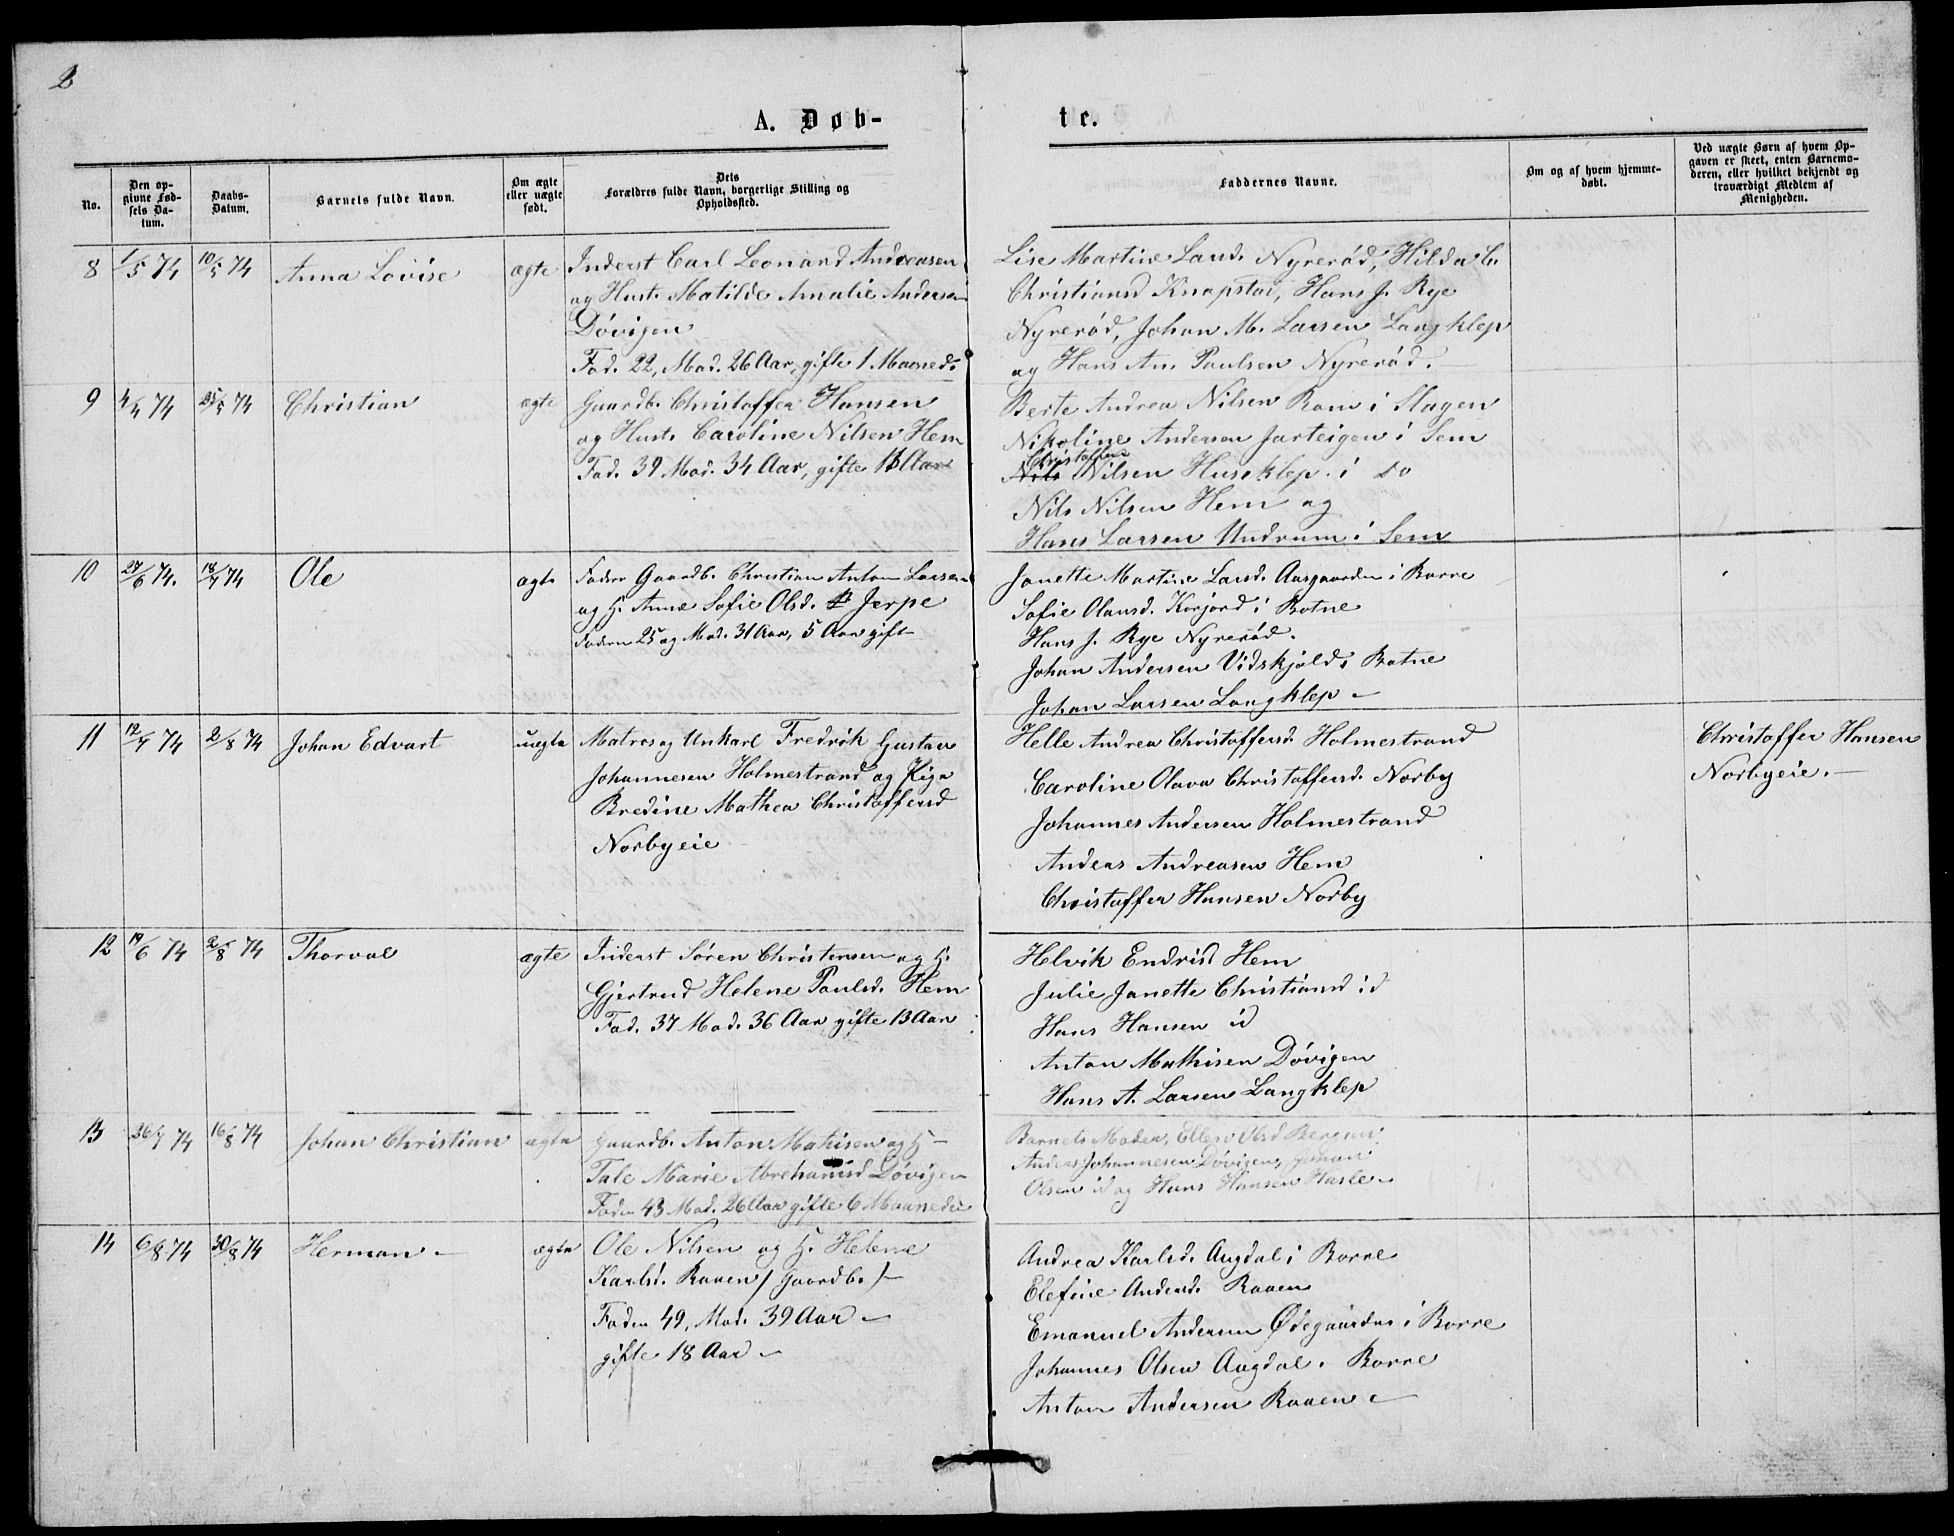 2
A. Døb-
te.
No.
Den op-
givne Fød-
sels Da-
tum.
Daabs-
Datum.
Barnets fulde Navn.
Om ægte
eller uægte
født.
Dets
Forældres fulde Navn, borgerlige Stilling og
Opholdssted.
Faddernes Navne.
Om og af hvem hjemme-
døbt.
Ved uægte Børn af hvem Op-
gaven er skeet, enten Barnemo-
deren, eller hvilket bekjendt og
troværdigt Medlem af
Menigheden.
8 1/5 74 10/5 74 Anna Lovise ægte Inderst Carl Leonard Andreasen
og Hust. Matilde Amalie Andersen
Døvigen
Fad. 22, Mod. 26 Aar, gifte 1 Maaned.
Lise Martine Larsd. Nyrerød, Hilda L.
Christiansd Knapstad, Hans J. Rye
Nyrerød, Johan M. Larsen Langklep
og Hans An. Paulsen Nyrerød.
9 4/4 74 25/5 74 Christian ægte Gaardb. Christoffer Hansen
og Hust. Caroline Nilsen Hem
Fad. 39 Mod. 34 Aar, gifte 13 Aar
Berte Andrea Nilsen Rom i Slagen
Nikoline Andersen Jarteigen i Sem
Christoffer
Nils Nilsen Huseklep i do
Nils Nilsen Hem og
Hans Larsen Undrum i Sem
10 27/6 74. 18/7 74 Ole ægte Fader Gaardb. Christian Anton Larsen
og H. Anne Sofie Olsd. Jerpe
Faderen 25 og Mod. 31 Aar, 5 Aar gift
Janette Martine Larsd. Aasgaarden i Borre
Sofie Olausd. Korjord i Botne
Hans J. Rye Nyrerød.
Johan Andersen Vidskjold i Botne
Johan Larsen Langklep
11 12/7 74 2/8 74 Johan Edvart uægte Matros og Unkarl Fredrik Gustav
Johannesen Holmestrand og Pige
Bredine Mathea Christoffersd
Norbyeie
Helle Andrea Christoffersd. Holmestrand
Caroline Olava Christoffersd. Norby
Johannes Andersen Holmestrand
Anders Andreasen Hem
Christoffer Hansen Norby
Christoffer Hansen
Norbyeie.
12 19/6 74 2/8 74 Thorval ægte Inderst Søren Christensen og H.
Gjertrud Helene Paulsd. Hem
Fad. 37 Mod. 36 Aar gifte 13 Aar
Helvik Endrisd Hem
Julie Janette Christiansd id
Hans Hansen id
Anton Mathisen Døvigen
Hans A. Larsen Langklep
13 26/7 74 16/8 74 Johan Christian ægte Gaardb. Anton Mathisen og H
Tale Marie Abrehamsd Døvigen
Faden 43 Mod. 26 Aar gifte 6 Maaneder
Barnets Moder, Ellen Olsd Bergan,
Anders Johannesen Døvigen, Johan
Olsen id og Hans Hansen Hasle
14 6/8 74 30/8 74 Herman ægte Ole Nilsen og H. Helene
Karlsd. Raaen / Gaardb. /
Faden 49, Mod. 39 Aar
gifte 18 Aar
Andrea Karlsd. Augdal i Borre
Elefine Andersd. Raaen
Emanuel Andersen Ødegaarden i Borre
Johannes Olsen Augdal i Borre
Anton Andersen Raaen